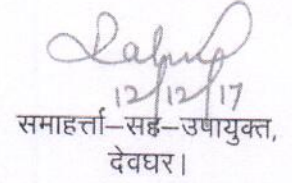 12/12/17
समाहर्त्ता–सह–उपायुक्त,
देवघर।